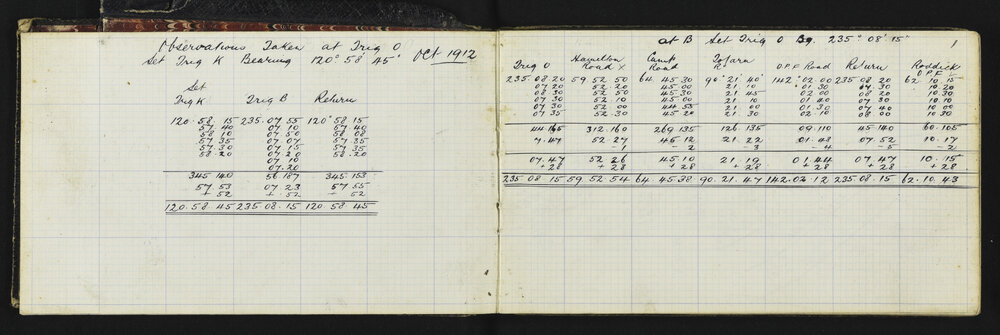 Observations Taken at Trig O
Set Trig K Bearing 120° 58' 45" Oct 1912
Set
Trig K Trig B Return
120. 58. 15 235. 07 55 120° 58. 15
57 40 07 10 57 40
58 10 07 50 58 08
57 35 07 07 57 35
57. 30 07 15 57 35
58. 20 07 20 58. 20
07 10
07. 20
345 140 56 187 345 153
57 53 07 23 57 55
+ 52 + 52 + 52
120. 58. 45 235. 08. 15 120. 58 45
at B Set Trig O Bg. 235° 08' 15" 1
Trig O Hamilton Road X Camp Road R° O.P.F Road Return Roddick O.P.F
235. 08. 20 59 52 50 64. 45 30 90° 21. 40" 142° 02 00 235 08 20 62 10. 15
07 20 52 20 45 00 21 10 01 30 07. 30 10. 20
08 30 52 50 45 30 21 45 02 00 08 20 10. 30
07 30 52 10 45 00 21 10 01 40 07 30 10. 10
07 30 52 00 44 55 21 00 01 30 07 40 10 00
07 35 52 30 45 20 21 30 02. 10 08 00 10 30
44 165 312. 160 269 135 126 135 09. 110 45 140 60. 105
7. 47 52 27 45 12 21. 22 01. 48 07. 52 10. 17
- 1 - 2 - 3 - 4 - 5 - 2
07. 47 52 26 45 10 21 19 01. 44 07. 47 10. 15
+ 28 + 28 + 28 + 28 + 28 + 28 + 28
235 08 15 59 52 54 64. 45 38 90. 21. 47 142. 02. 12 235. 08. 15 62. 10. 43